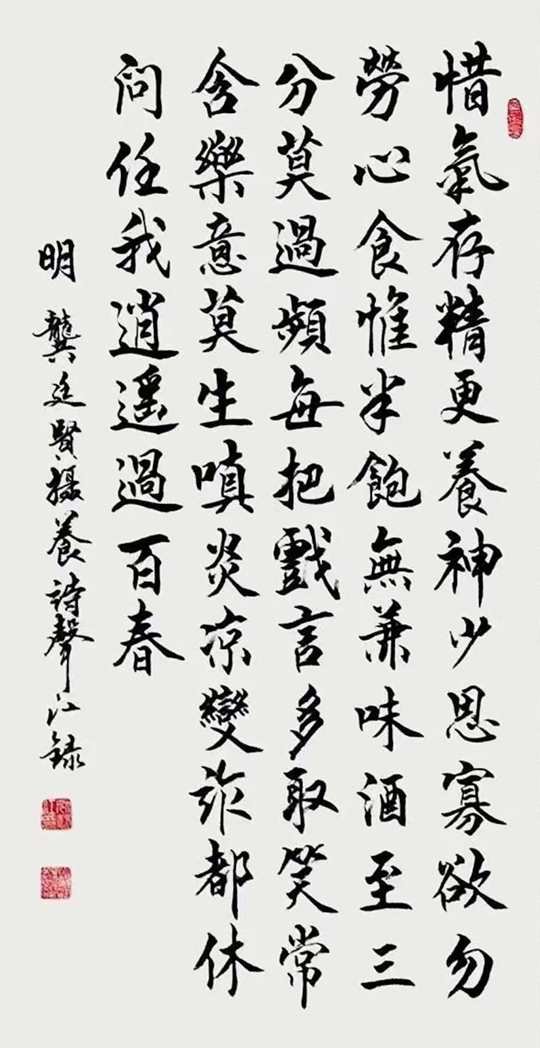 惜氣存精更養神少思寡欲勿
勞心食惟半飽無兼味酒至三
分莫過頻每把戲言多取笑常
含樂意莫生嗔炎涼變詐都休
問任我逍遥過百春
明 龔廷賢攝養詩聲江録